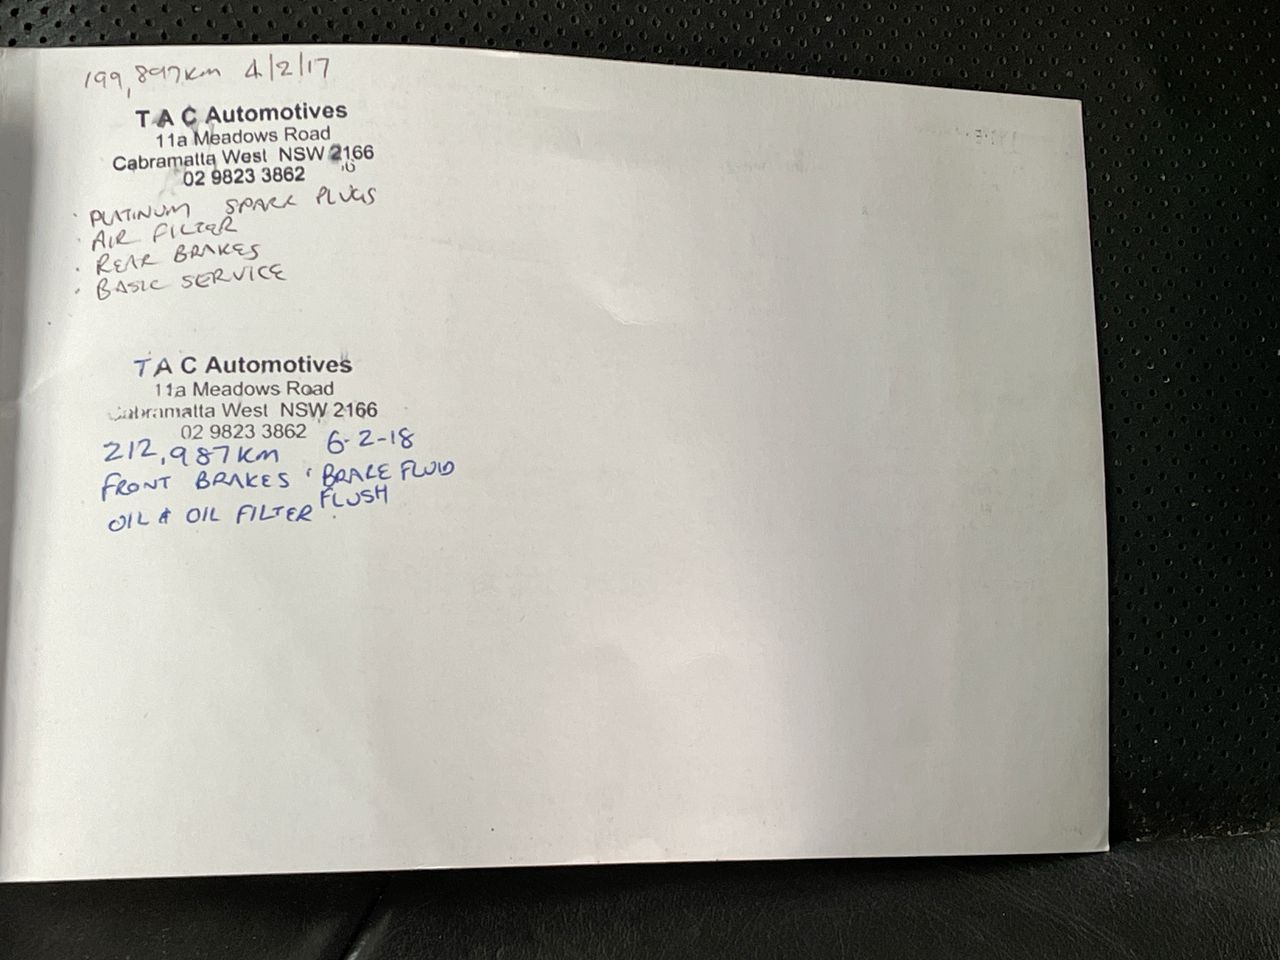 199,897km 4/2/17
T A C Automotives
11a Meadows Road
Cabramatta West NSW 2166
02 9823 3862
· PLATINUM SPARK PLUGS
· AIR FILTER
· REAR BRAKES
· BASIC SERVICE
T A C Automotives
11a Meadows Road
Cabramatta West NSW 2166
02 9823 3862
212,987km 6-2-18
FRONT BRAKES · BRAKE FLUID
FLUSH
OIL & OIL FILTER